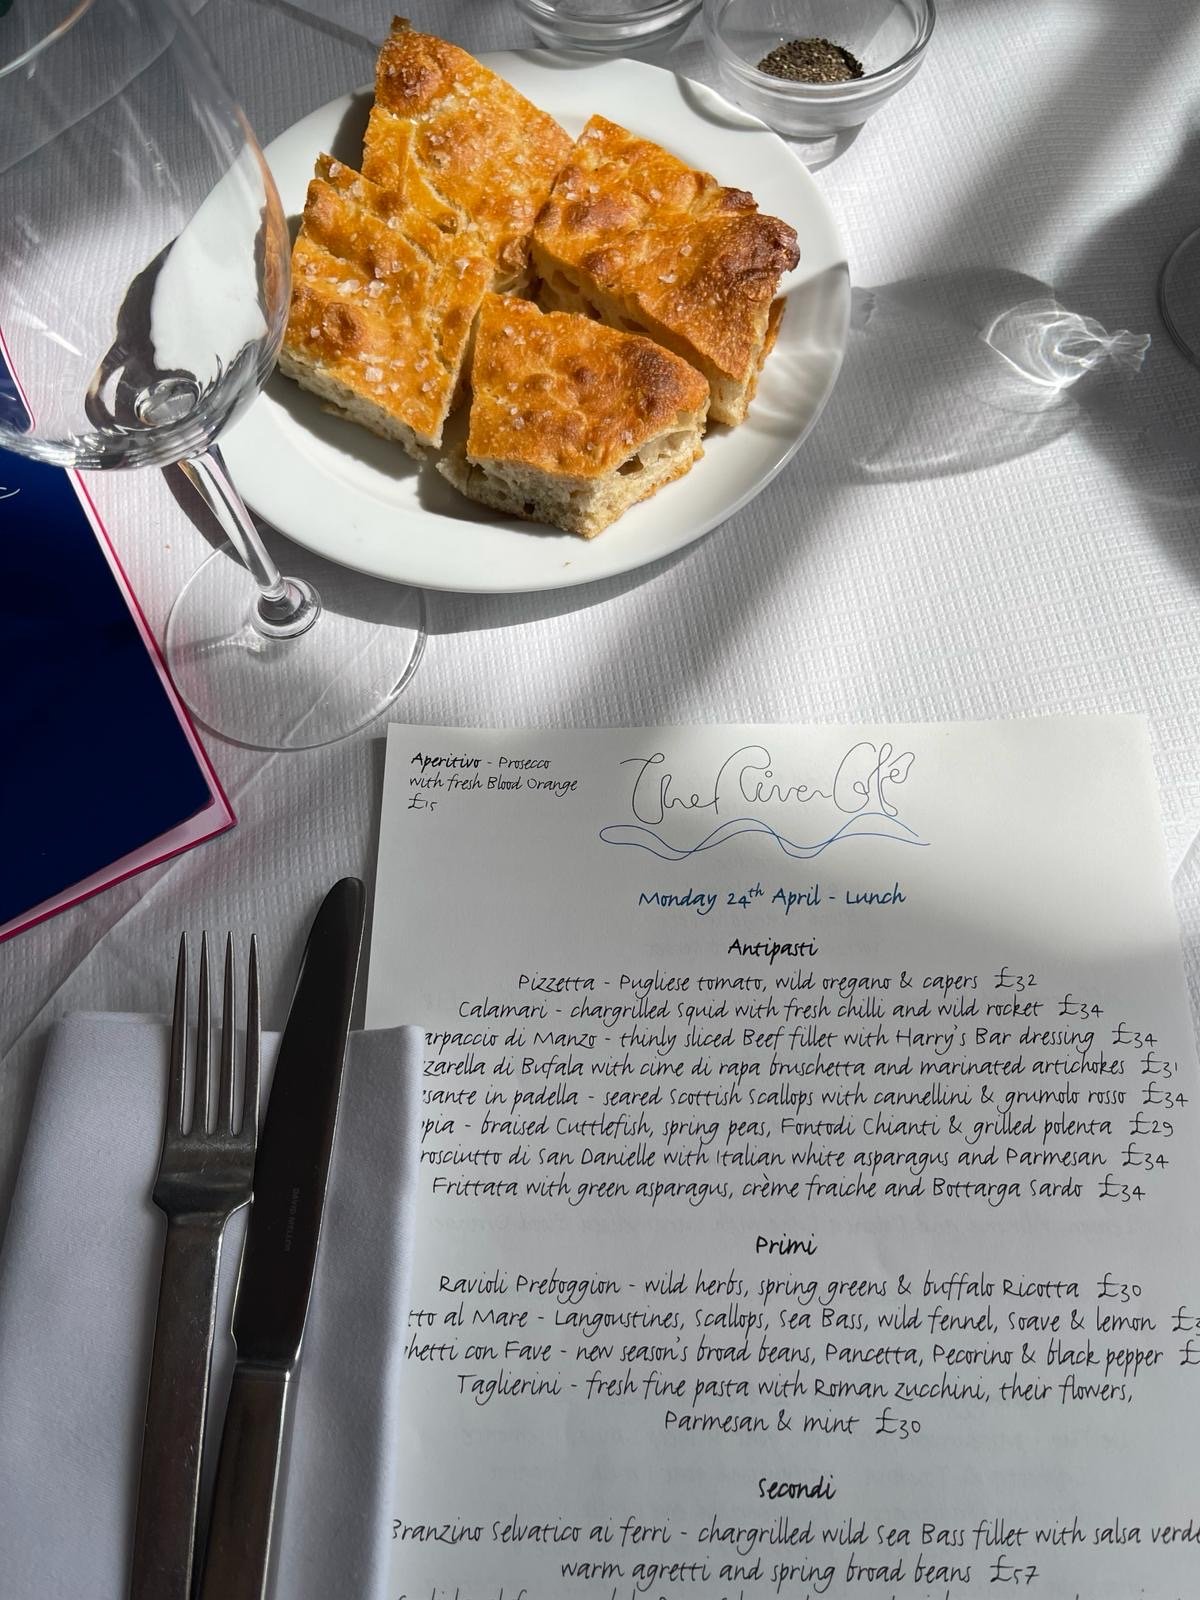 Aperitivo - Prosecco
with fresh Blood Orange
£15
The River Café
Monday 24th April - Lunch
Antipasti
Pizzetta - Pugliese tomato, wild oregano & capers £32
Calamari - chargrilled Squid with fresh chilli and wild rocket £34
arpaccio di Manzo - thinly sliced Beef fillet with Harry's Bar dressing £34
zzarella di Bufala with cime di rapa bruschetta and marinated artichokes £31
sante in padella - seared Scottish Scallops with cannellini & grumolo rosso £34
ppia - braised Cuttlefish, spring peas, Fontodi Chianti & grilled polenta £29
rosciutto di San Danielle with Italian white asparagus and Parmesan £34
Frittata with green asparagus, crème fraiche and Bottarga Sardo £34
Primi
Ravioli Preboggion - wild herbs, spring greens & buffalo Ricotta £30
tto al Mare - Langoustines, Scallops, Sea Bass, wild fennel, Soave & lemon £3
hetti con Fave - new season's broad beans, Pancetta, Pecorino & black pepper £
Taglierini - fresh fine pasta with Roman zucchini, their flowers,
Parmesan & mint £30
Secondi
Branzino Selvatico ai ferri - chargrilled wild Sea Bass fillet with salsa verde
warm agretti and spring broad beans £57
DAVID MELLOR